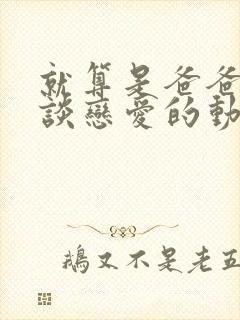 就算是爸爸
談戀愛的動
鵝又不是老五